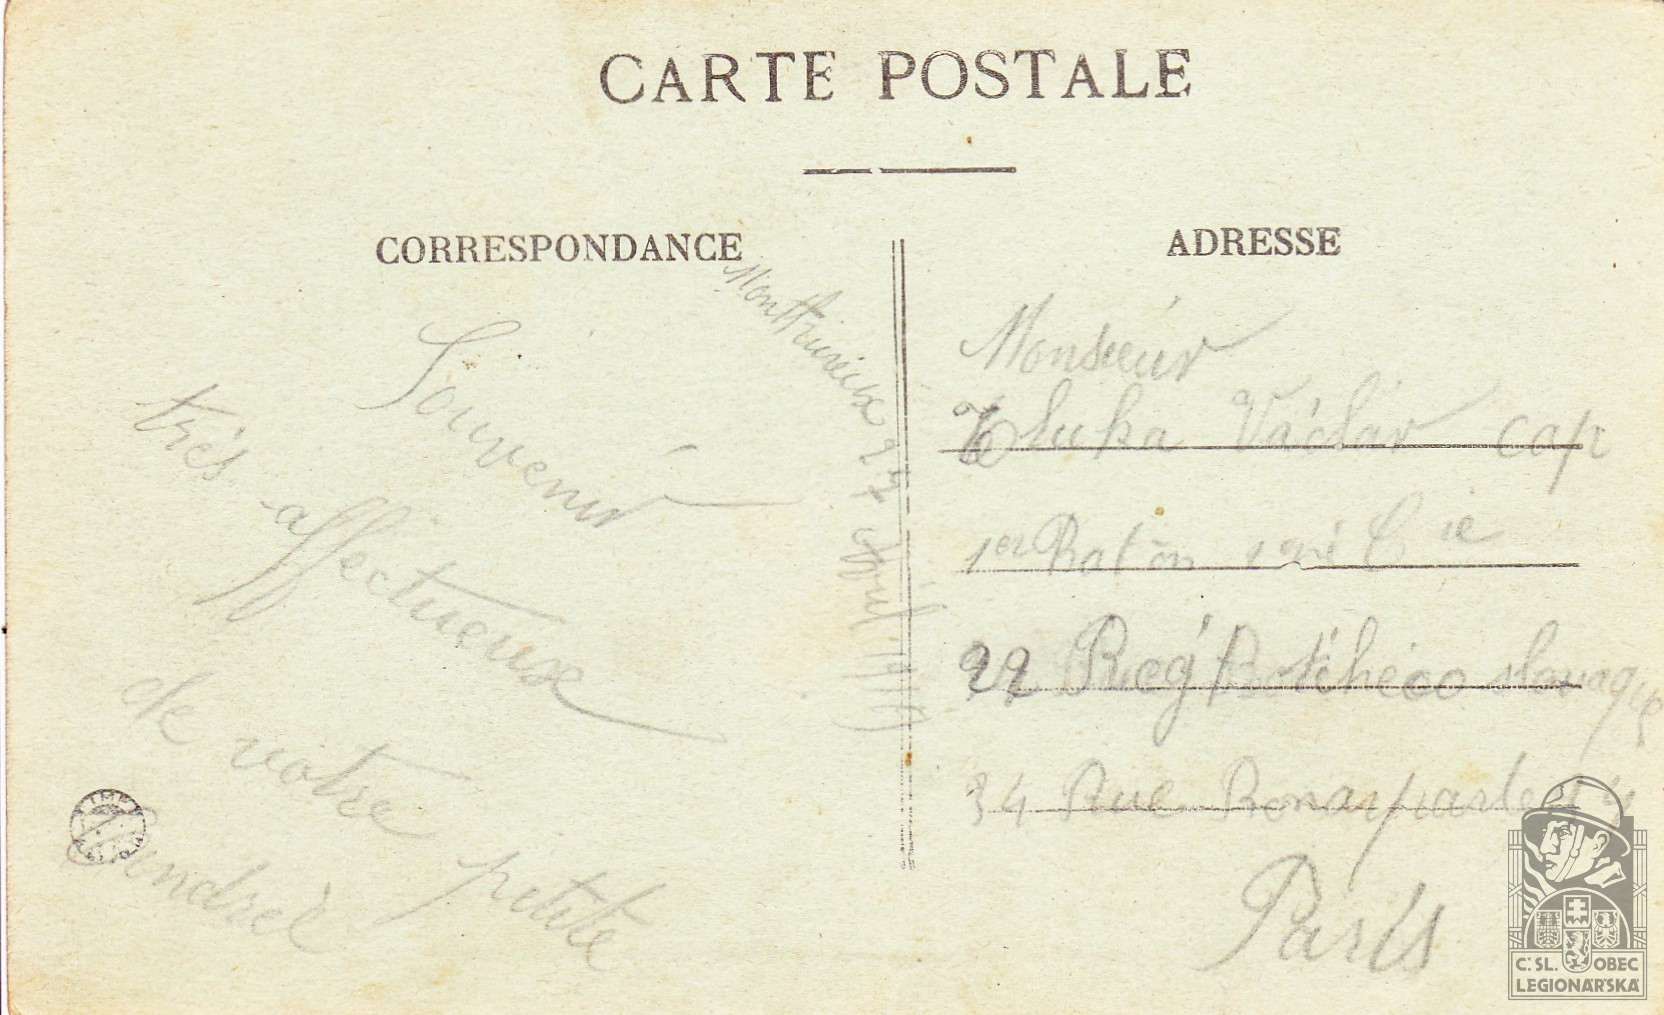 CARTE POSTALE
CORRESPONDANCE
ADRESSE
Souvenir
très affectueuse
de votre petite
Andreé
Avril 1919
Monsieur
Hluka Václav cap
1er Baton Cie
22 Rég Tchécoslovaque
34 Rue Bonaparte
Paris
Č. SL. OBEC
LEGIONÁŘSKÁ